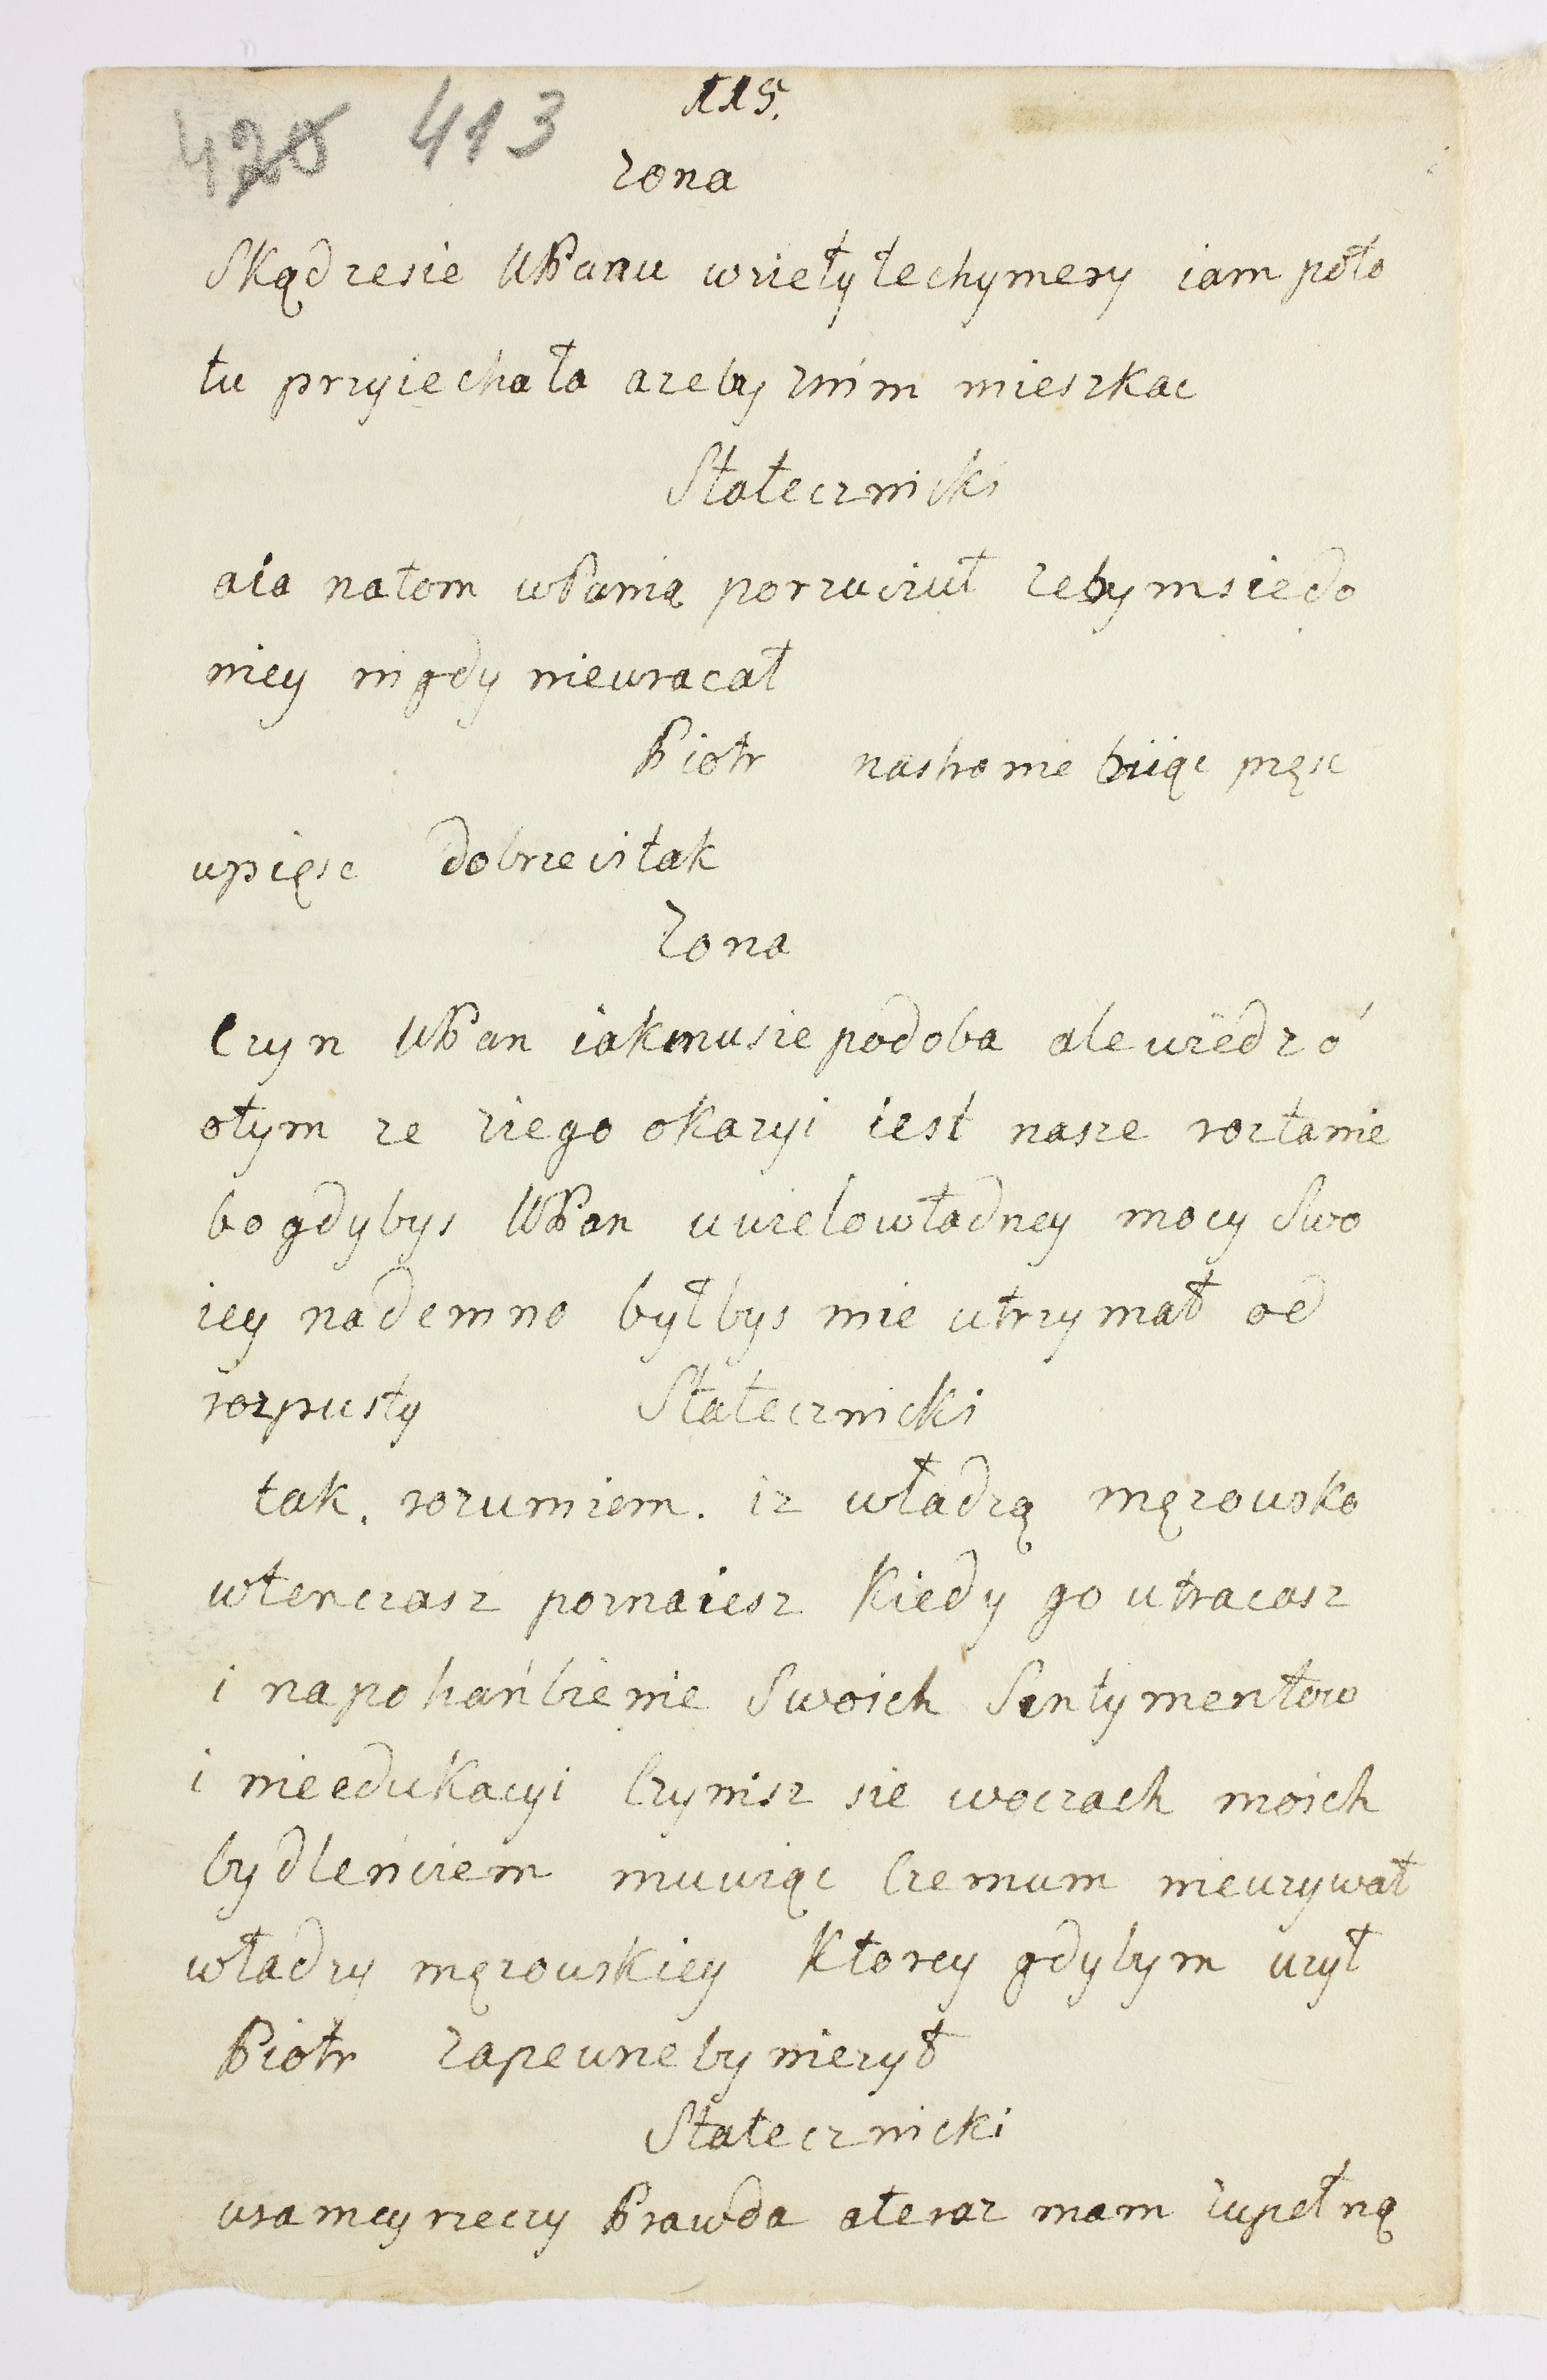 115.
420 413
zona
Skądzesie WPanu wzięły techymery iam poto
tu przyiechała azeby znim mieszkac
Statecznicki
aia natom wPanią porzuciuł zebymsiedo
niey nigdy niewracał
Piotr nastronie biiąc pięsc
upięsc dobrzeci tak
Zona
Czyn WPan iakmusie podoba alewiedz o
otym ze ziego okazyi iest nasze roztanie
bo gdybys WPan uuzełowładney mocy Swo
iey nademno byłbys mie utrzymał od
rozpusty Statecznicki
tak. rozumiem. iz władzą męzousko
wtenczasz poznaiesz Kiedy go utracasz
i napohańbienie Swoich Sentymentow
i nieedukacyi Czynisz sie woczach moich
bydleńciem muwiąc Czemum nieuzywał
władzy męzouskiey Ktorey gdybym uzył
Piotr zapeunebyniezył
Statecznicki
usamey rzeczy Prawda ateraz mam zupełną